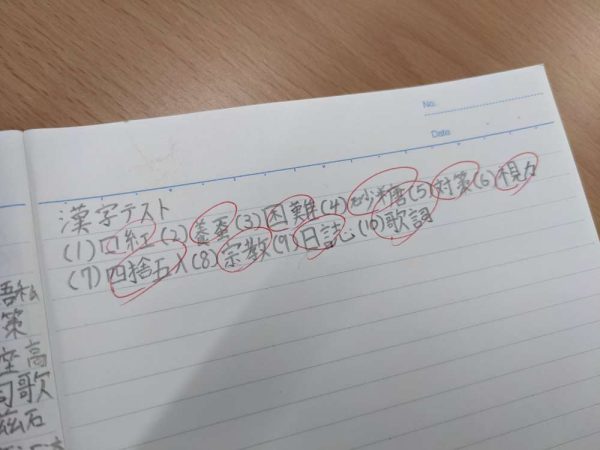 No.
Date
漢字テスト
(1)口紅(2)養蚕(3)困難(4)砂糖(5)対策(6)視力
(7)四捨五入(8)宗教(9)日誌(10)歌詞
策
高
歌
磁石